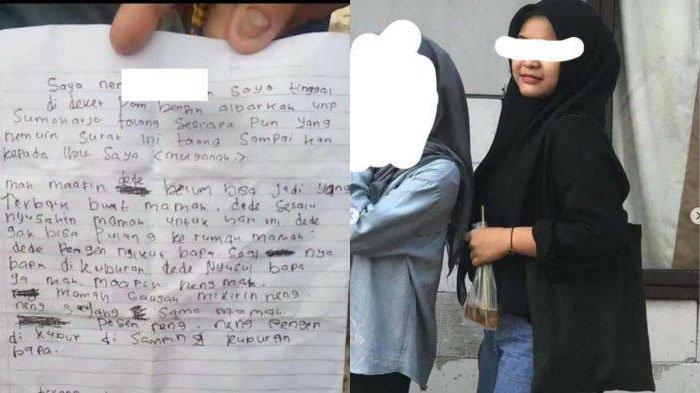 Saya nen Saya tinggal
di deket pom bensin albarkah unp
Sumoharjo tolong Sesiapa pun yang
nemuin Surat Ini toong Sampai kan
kepada Ibu Saya <muryanah>
mah maafin dede belum bisa jadi yang
terbaik buat mamah. dede selalu
nyusahin mamah. untuk hari ini dede
gak bisa pulang ke rumah mamah.
dede pengen ngikut bapa. nya
bapa di kuburan dede nyusul bapa
ya mah maafin neng mah.
mamah gausah mikirin neng.
neng sayang sama mamah.
pesen neng. neng pengen
di kubur di samping kuburan
bapa.